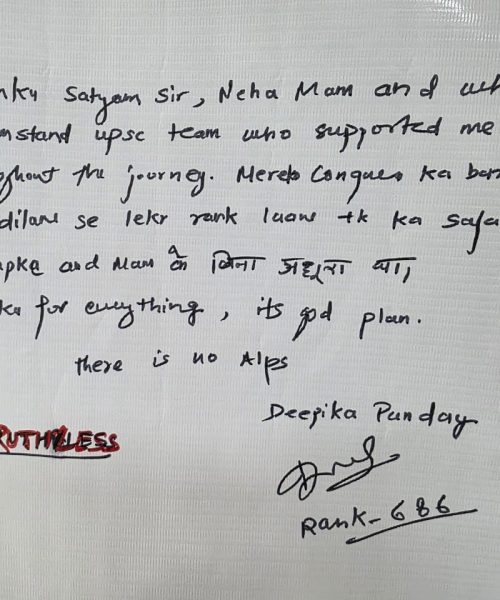 nku Satyam Sir, Neha Mam and wh
mstand upsc team who supported me
ghout the journey. Mereko Conquer ka ban
dilane se lekr rank laane tk ka safa
apke and Mam के बिना अधूरा था,
ku for everything, its god plan.
there is no Alps
Deepika Panday
RUTHLESS
Rank-686